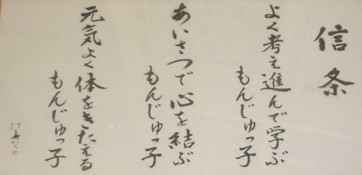 信条
よく考え進んで学ぶ
もんじゅっ子
あいさつで心を結ぶ
もんじゅっ子
元気よく体をきたえる
もんじゅっ子